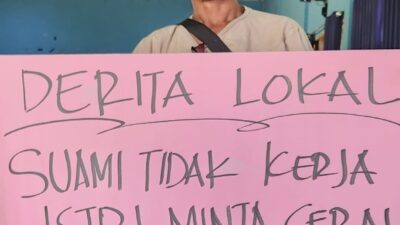 DERITA LOKAL
SUAMI TIDAK KERJA
ISTRI MINTA CERAI